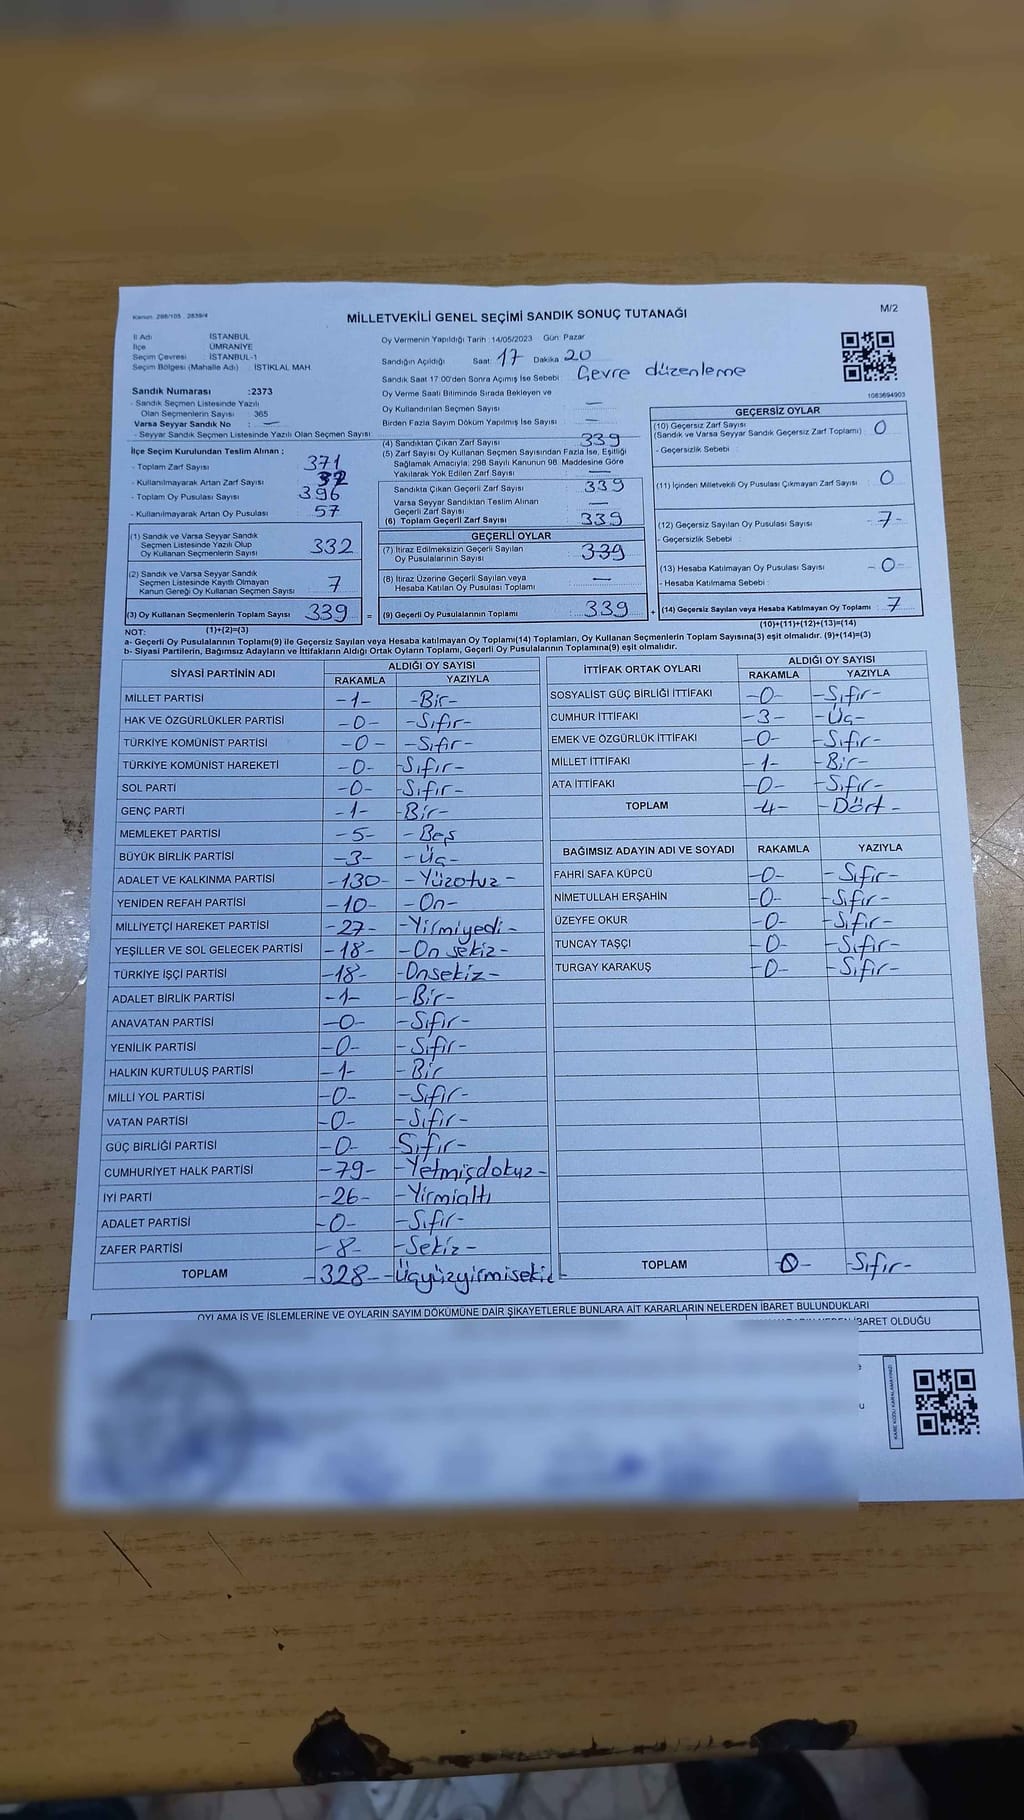 Kanun: 298/105 , 2839/4
M/2
MİLLETVEKİLİ GENEL SEÇİMİ SANDIK SONUÇ TUTANAĞI
İl Adı : İSTANBUL
İlçe : ÜMRANİYE
Seçim Çevresi : İSTANBUL-1
Seçim Bölgesi (Mahalle Adı) : İSTİKLAL MAH.
Sandık Numarası :2373
- Sandık Seçmen Listesinde Yazılı
Olan Seçmenlerin Sayısı : 365
Varsa Seyyar Sandık No : —
- Seyyar Sandık Seçmen Listesinde Yazılı Olan Seçmen Sayısı:
İlçe Seçim Kurulundan Teslim Alınan ;
- Toplam Zarf Sayısı 371
- Kullanılmayarak Artan Zarf Sayısı 32
- Toplam Oy Pusulası Sayısı 396
- Kullanılmayarak Artan Oy Pusulası 57
(1) Sandık ve Varsa Seyyar Sandık
Seçmen Listesinde Yazılı Olup
Oy Kullanan Seçmenlerin Sayısı 332
(2) Sandık ve Varsa Seyyar Sandık
Seçmen Listesinde Kayıtlı Olmayan
Kanun Gereği Oy Kullanan Seçmen Sayısı 7
(3) Oy Kullanan Seçmenlerin Toplam Sayısı 339 =
(1)+(2)=(3)
Oy Vermenin Yapıldığı Tarih :14/05/2023 Gün: Pazar
Sandığın Açıldığı Saat: 17 Dakika 20
Sandık Saat 17.00'den Sonra Açımış İse Sebebi : Çevre düzenleme
Oy Verme Saati Bitiminde Sırada Bekleyen ve
Oy Kullandırılan Seçmen Sayısı —
Birden Fazla Sayım Döküm Yapılmış İse Sayısı : —
(4) Sandıktan Çıkan Zarf Sayısı 339
(5) Zarf Sayısı Oy Kullanan Seçmen Sayısından Fazla İse, Eşitliği
Sağlamak Amacıyla; 298 Sayılı Kanunun 98. Maddesine Göre
Yakılarak Yok Edilen Zarf Sayısı —
Sandıkta Çıkan Geçerli Zarf Sayısı 339
Varsa Seyyar Sandıktan Teslim Alınan
Geçerli Zarf Sayısı
(6) Toplam Geçerli Zarf Sayısı 339
GEÇERLİ OYLAR
(7) İtiraz Edilmeksizin Geçerli Sayılan
Oy Pusulalarının Sayısı 339
(8) İtiraz Üzerine Geçerli Sayılan veya
Hesaba Katılan Oy Pusulası Toplamı —
(9) Geçerli Oy Pusulalarının Toplamı 339 +
1083694903
GEÇERSİZ OYLAR
(10) Geçersiz Zarf Sayısı
(Sandık ve Varsa Seyyar Sandık Geçersiz Zarf Toplamı) : 0
- Geçersizlik Sebebi :
(11) İçinden Milletvekili Oy Pusulası Çıkmayan Zarf Sayısı 0
(12) Geçersiz Sayılan Oy Pusulası Sayısı 7-
- Geçersizlik Sebebi :
(13) Hesaba Katılmayan Oy Pusulası Sayısı -0-
- Hesaba Katılmama Sebebi :
(14) Geçersiz Sayılan veya Hesaba Katılmayan Oy Toplamı 7
(10)+(11)+(12)+(13)=(14)
NOT:
a- Geçerli Oy Pusulalarının Toplamı(9) ile Geçersiz Sayılan veya Hesaba katılmayan Oy Toplamı(14) Toplamları, Oy Kullanan Seçmenlerin Toplam Sayısına(3) eşit olmalıdır. (9)+(14)=(3)
b- Siyasi Partilerin, Bağımsız Adayların ve İttifakların Aldığı Ortak Oyların Toplamı, Geçerli Oy Pusulalarının Toplamına(9) eşit olmalıdır.
SİYASİ PARTİNİN ADI ALDIĞI OY SAYISI
RAKAMLA YAZIYLA
MİLLET PARTİSİ -1- -Bir-
HAK VE ÖZGÜRLÜKLER PARTİSİ -0- -Sıfır-
TÜRKİYE KOMÜNİST PARTİSİ -0- -Sıfır-
TÜRKİYE KOMÜNİST HAREKETİ -0- -Sıfır-
SOL PARTİ -0- -Sıfır-
GENÇ PARTİ -1- -Bir-
MEMLEKET PARTİSİ -5- -Beş
BÜYÜK BİRLİK PARTİSİ -3- -Üç-
ADALET VE KALKINMA PARTİSİ -130- -Yüzotuz-
YENİDEN REFAH PARTİSİ -10- -On-
MİLLİYETÇİ HAREKET PARTİSİ -27- -Yirmiyedi-
YEŞİLLER VE SOL GELECEK PARTİSİ -18- -On sekiz-
TÜRKİYE İŞÇİ PARTİSİ -18- -Onsekiz-
ADALET BİRLİK PARTİSİ -1- -Bir-
ANAVATAN PARTİSİ -0- -Sıfır-
YENİLİK PARTİSİ -0- -Sıfır-
HALKIN KURTULUŞ PARTİSİ -1- -Bir
MİLLİ YOL PARTİSİ -0- -Sıfır-
VATAN PARTİSİ -0- -Sıfır-
GÜÇ BİRLİĞİ PARTİSİ -0- Sıfır-
CUMHURİYET HALK PARTİSİ -79- -Yetmişdokuz-
İYİ PARTİ -26- -Yirmialtı
ADALET PARTİSİ -0- -Sıfır-
ZAFER PARTİSİ -8- -Sekiz-
TOPLAM -328- -Üçyüzyirmisekiz-
İTTİFAK ORTAK OYLARI ALDIĞI OY SAYISI
RAKAMLA YAZIYLA
SOSYALİST GÜÇ BİRLİĞİ İTTİFAKI -0- -Sıfır-
CUMHUR İTTİFAKI -3- -Üç-
EMEK VE ÖZGÜRLÜK İTTİFAKI -0- -Sıfır-
MİLLET İTTİFAKI -1- -Bir-
ATA İTTİFAKI -0- -Sıfır-
TOPLAM -4- -Dört-
BAĞIMSIZ ADAYIN ADI VE SOYADI RAKAMLA YAZIYLA
FAHRİ SAFA KÜPCÜ -0- -Sıfır-
NİMETULLAH ERŞAHİN -0- -Sıfır-
ÜZEYFE OKUR -0- -Sıfır-
TUNCAY TAŞÇI -0- -Sıfır-
TURGAY KARAKUŞ -0- -Sıfır-
TOPLAM -0- -Sıfır-
OYLAMA İŞ VE İŞLEMLERİNE VE OYLARIN SAYIM DÖKÜMÜNE DAİR ŞİKAYETLERLE BUNLARA AİT KARARLARIN NELERDEN İBARET BULUNDUKLARI
İBARET OLDUĞU
KARE KODU KARALAMAYINIZ!